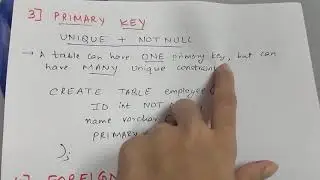 3] PRIMARY KEY
UNIQUE + NOT NULL
→ A table can have ONE primary key, but can
have MANY unique constrain
CREATE TABLE employee
ID int NOT
name varchar
PRIMARY
);
FOREIGN